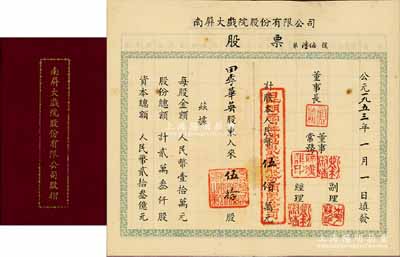 南屏大戲院股份有限公司股摺
南屏大戲院股份有限公司
股票
第 號
公元一九五三年一月一日填發
董事長
常務董事
經理
副理
計股本人民幣伍佰萬元
田李華英股東入來 伍拾股
茲據
每股金額 人民幣壹拾萬元
股份總額 計貳萬叁仟股
資本總額 人民幣貳拾叁億元